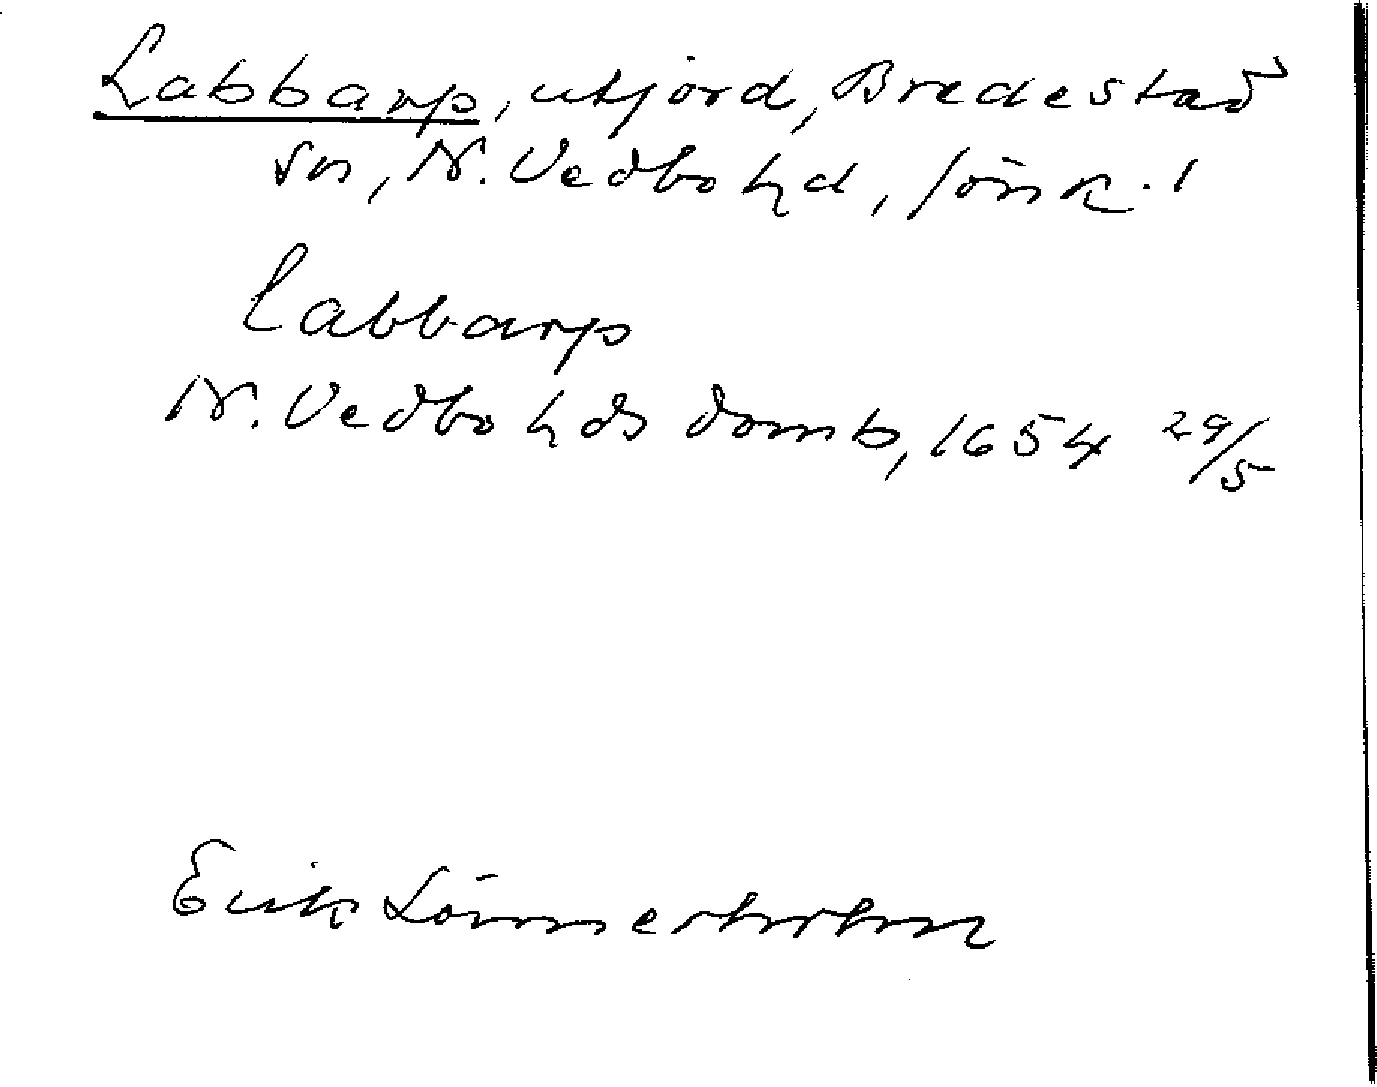 Labbarp, utjord, Bredestad
sn, N. Vedbo hd, Jönk. l
Labbarp
N. Vedbo hds domb, 1654 29/5
Erik Lönnerholm